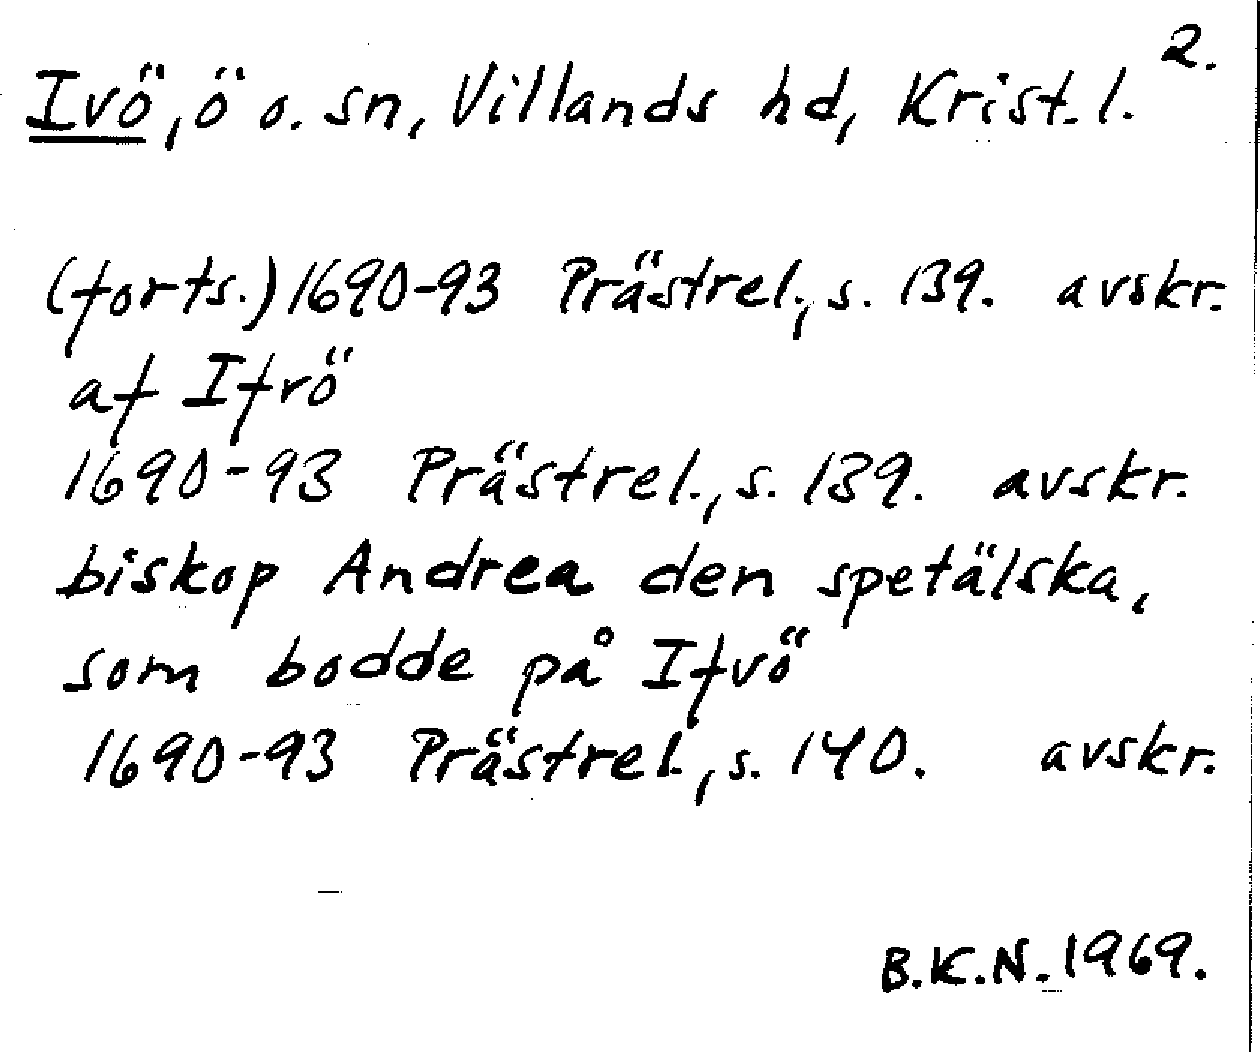 2.
Ivö, ö o. sn, Villands hd, Krist. l.
(forts.) 1690-93 Prästrel., s. 139. avskr.
af Ifvö
1690-93 Prästrel., s. 139. avskr.
biskop Andrea den spetälska,
som bodde på Ifvö
1690-93 Prästrel., s. 140. avskr.
B.K.N. 1969.